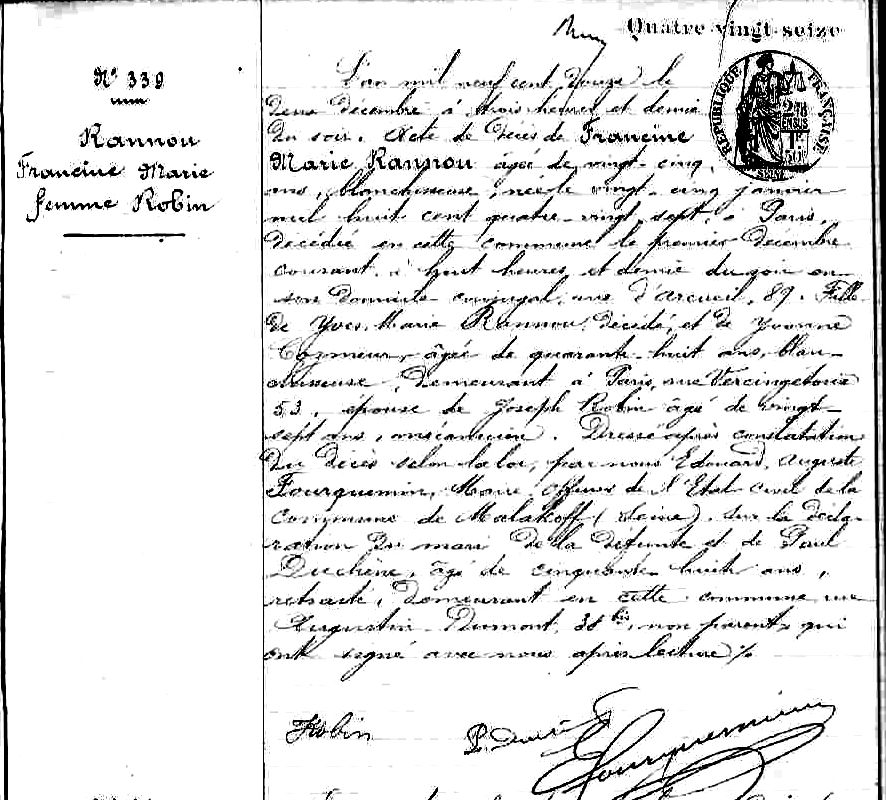 Quatre-vingt-seize
N° 339
Rannou
Francine Marie
femme Robin
RÉPUBLIQUE FRANÇAISE
SEINE
L'an mil neuf cent douze le
deux décembre à trois heures et demie
du soir. Acte de décès de Francine
Marie Rannou âgée de vingt-cinq
ans, blanchisseuse, née le vingt-cinq janvier
mil huit cent quatre-vingt-sept, à Paris,
décédée en cette commune le premier décembre
courant, à huit heures et demie du soir en
son domicile conjugal, rue d'Arcueil, 89. Fille
de Yves Marie Rannou, décédé, et de Yvonne
âgée de quarante-huit ans, blan-
chisseuse, demeurant à Paris, rue Vercingétorix
53, épouse de Joseph Robin âgé de vingt-
sept ans, mécanicien. Dressé après constatation
du décès selon la loi, par nous Edouard, Auguste
Fourquemin, Maire, officier de l'Etat-civil de la
Commune de Malakoff (Seine), sur la décla-
ration du mari de la défunte et de Paul
Duchêne, âgé de cinquante-huit ans,
retraité, demeurant en cette commune rue
Augustin Dumont, 38 bis, non parent, qui
ont signé avec nous après lecture ./.
Robin
Fourquemin